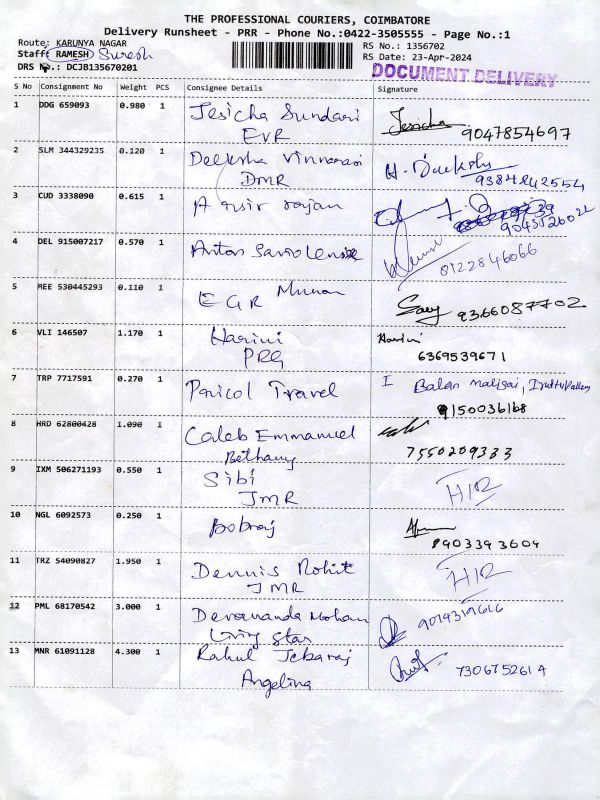 THE PROFESSIONAL COURIERS, COIMBATORE
Delivery Runsheet - PRR - Phone No.:0422-3505555 - Page No.:1
Route: KARUNYA NAGAR
RS No.: 1356702
Staff: RAMESH Suresh
RS Date: 23-Apr-2024
DRS No.: DCJB135670201
DOCUMENT DELIVERY
S No Consignment No Weight PCS Consignee Details Signature
1 DDG 659093 0.980 1 Jesicha Sundari Jesicha 9047854697
EVR
2 SLM 344329235 0.120 1 Deeksha Vinnarasi H. Deekshi
DMR 9384242554
3 CUD 3338090 0.615 1 A nsir rajan
4 DEL 915007217 0.570 1 Anton 8122846066
5 MEE 530445293 0.110 1 EGR Munan 9366087702
6 VLI 146507 1.170 1 Harini Harini
PRG 6369539671
7 TRP 7717591 0.270 1 Paricol Travel I Balan maligai,
9150036168
8 HRD 62800428 1.090 1 Caleb Emmanuel
Bethany 7550209333
9 IXM 506271193 0.550 1 Sibi
JMR
10 NGL 6092573 0.250 1 Bobraj
8903393604
11 TRZ 54090827 1.950 1 Dennis Rohit
JMR
12 PML 68170542 3.000 1 Devananda Mohan
Living Star
13 MNR 61091128 4.300 1 Rahul Jebaraj 7306752614
Angelina